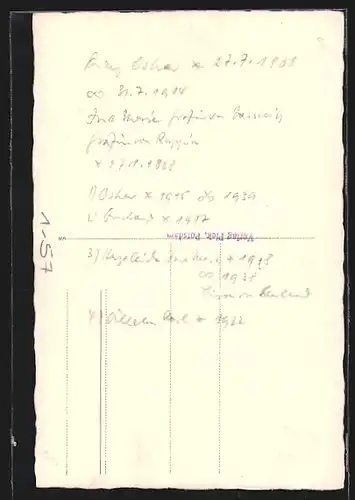 Prinz Oskar * 27.7.1888
∞ 31.7.1914
Ina Marie Gräfin von Bassewitz
Gräfin von Ruppin
* 27.1.1888
1) Oskar * 1915 1939
2) Burchard * 1917
3) Herzeleide * 1918
∞ 1938
Biron von Curland
4) Wilhelm Karl * 1922
Verlag Pick, Potsdam
1-57